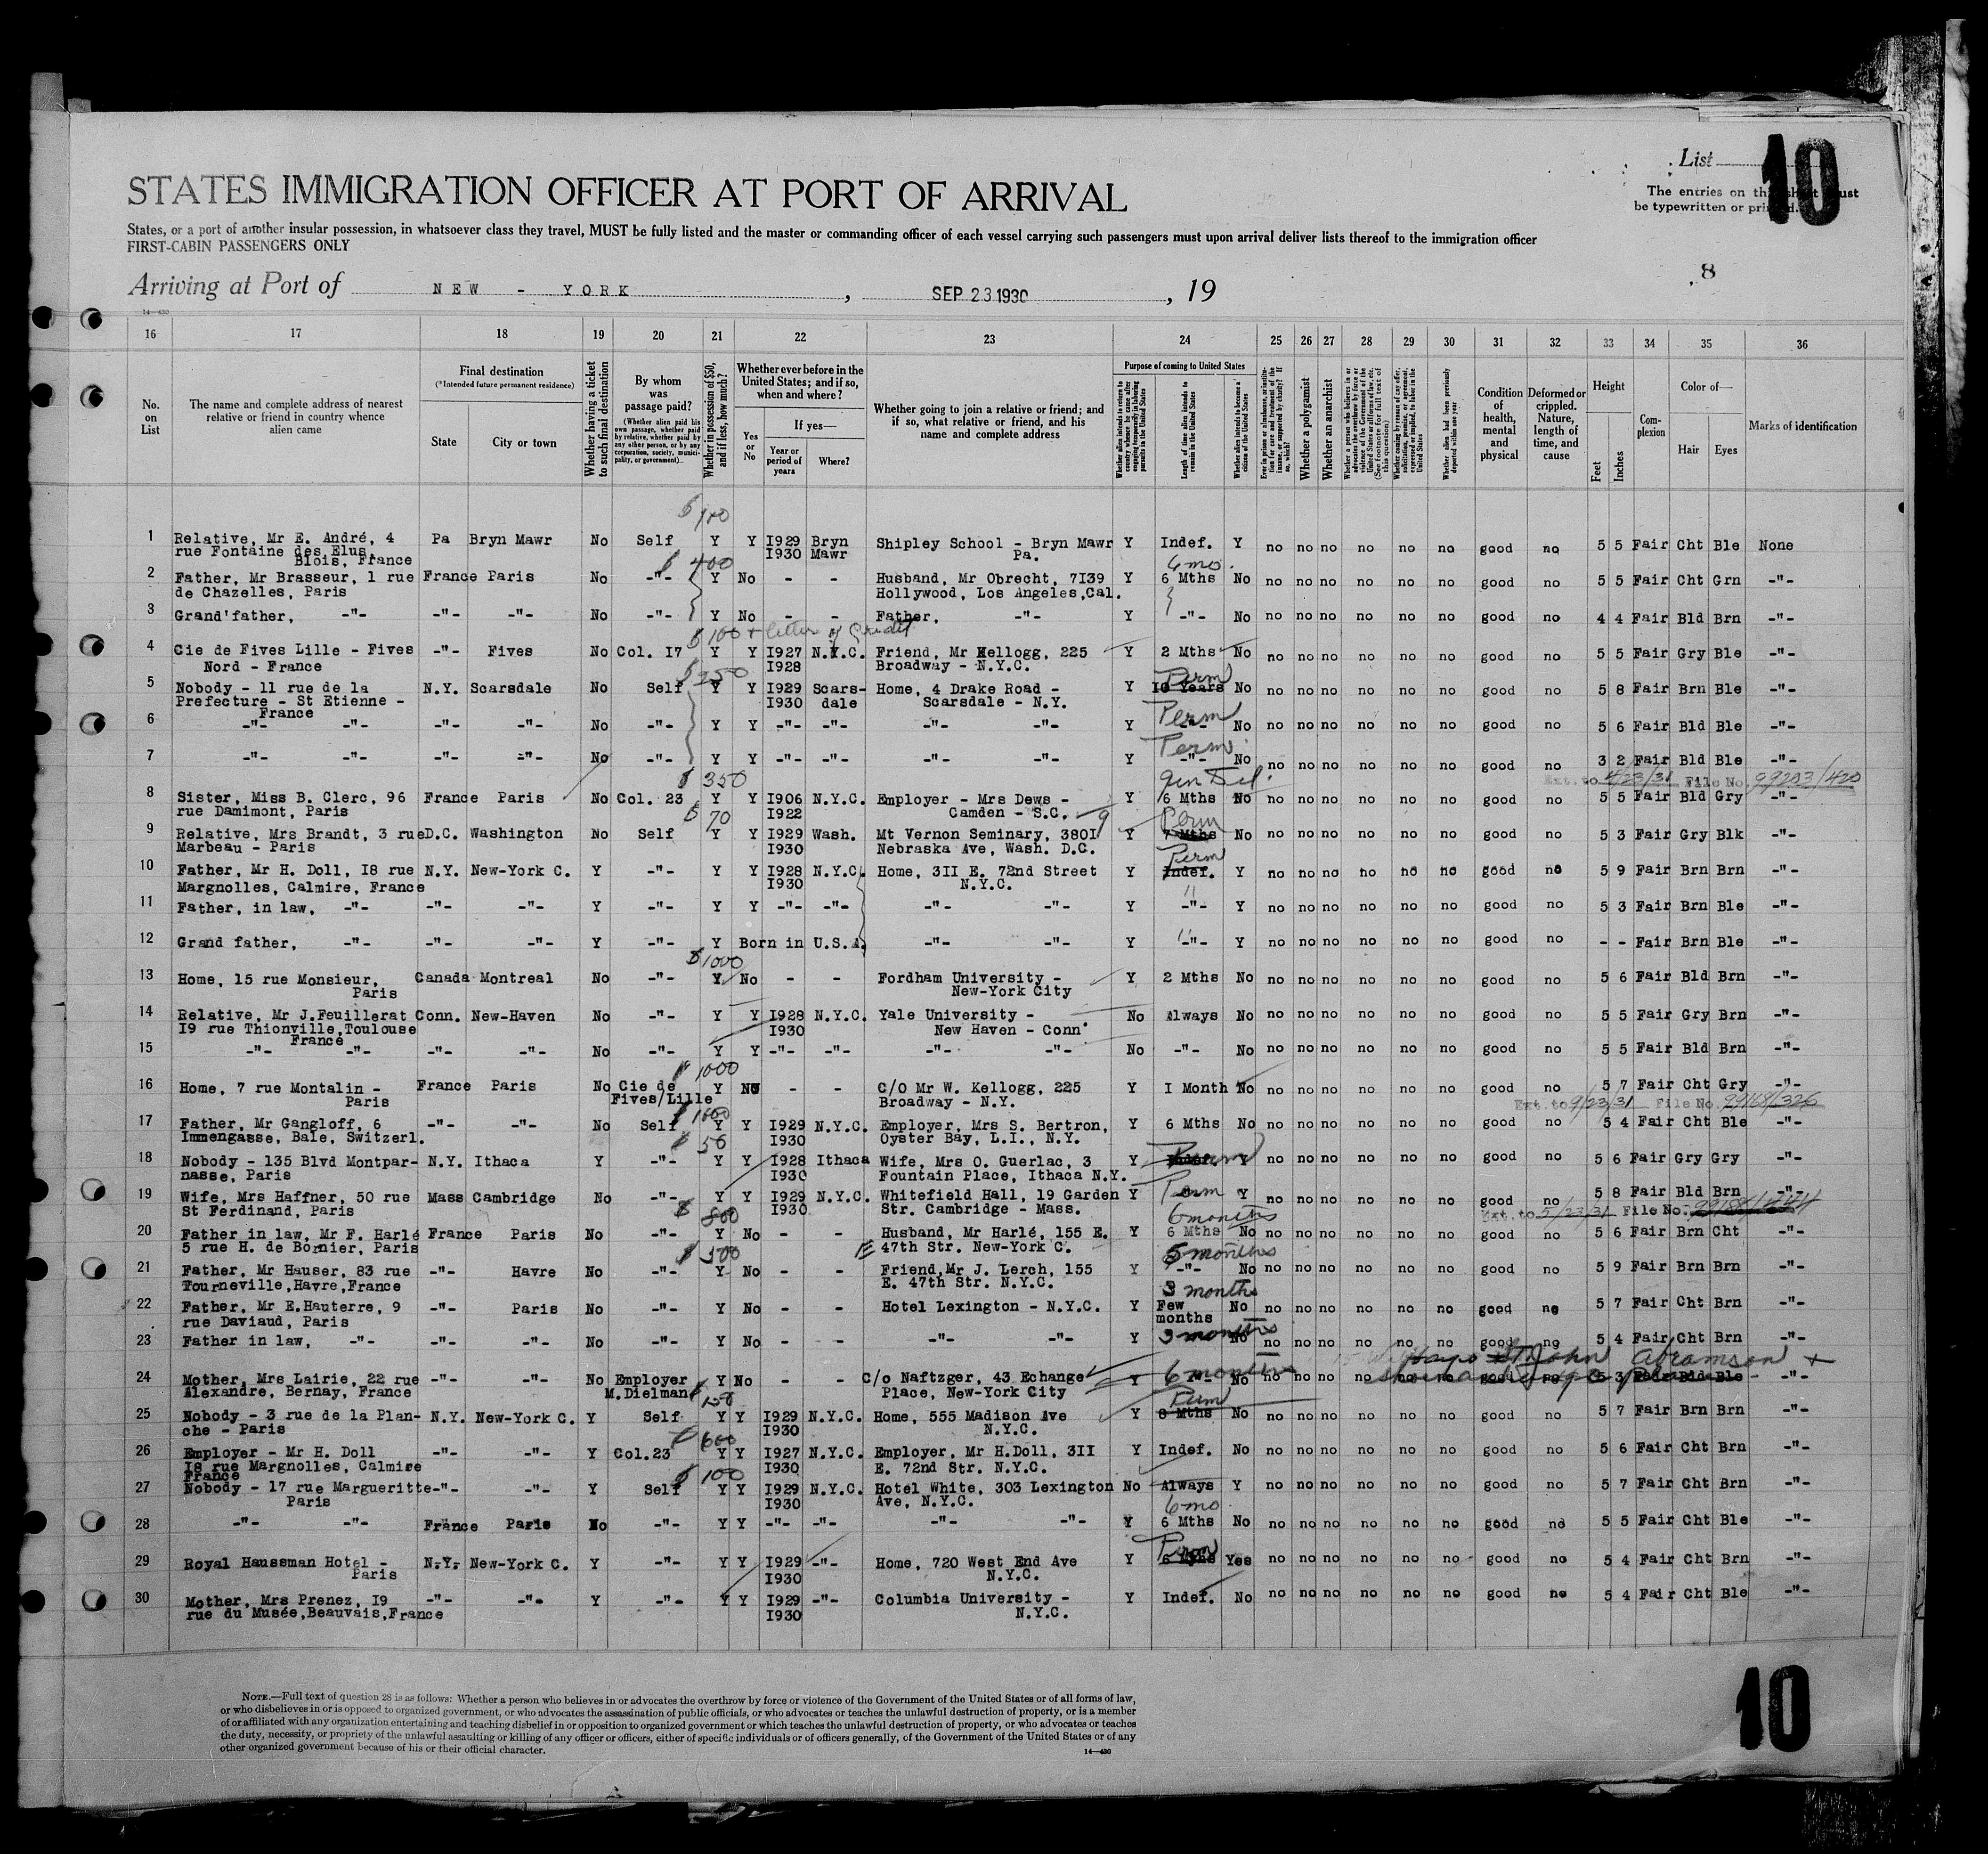 List
10
The entries on this sheet must
be typewritten or printed.
STATES IMMIGRATION OFFICER AT PORT OF ARRIVAL
States, or a port of another insular possession, in whatsoever class they travel, MUST be fully listed and the master or commanding officer of each vessel carrying such passengers must upon arrival deliver lists thereof to the immigration officer
FIRST-CABIN PASSENGERS ONLY
8
Arriving at Port of NEW - YORK , SEP 23 1930 , 19
14—430
16 17 18 19 20 21 22 23 24 25 26 27 28 29 30 31 32 33 34 35 36
No. on List
The name and complete address of nearest relative or friend in country whence alien came
Final destination (*Intended future permanent residence)
State
City or town
Whether having a ticket to such final destination
By whom was passage paid?
(Whether alien paid his own passage, whether paid by relative, whether paid by any other person, or by any corporation, society, municipality, or government)
Whether in possession of $50, and if less, how much?
Whether ever before in the United States; and if so, when and where?
Yes or No
If yes—
Year or period of years
Where?
Whether going to join a relative or friend; and if so, what relative or friend, and his name and complete address
Purpose of coming to United States
Length of time alien intends to remain in the United States
Whether alien intends to become a citizen of the United States
Whether a polygamist
Whether an anarchist
Condition of health, mental and physical
Deformed or crippled. Nature, length of time, and cause
Height
Feet
Inches
Complexion
Color of—
Hair
Eyes
Marks of identification
$100
1 Relative, Mr E. André, 4 Pa Bryn Mawr No Self Y Y I929 Bryn Shipley School - Bryn Mawr Y Indef. Y no no no no no no good no 5 5 Fair Cht Ble None
rue Fontaine des Elus, I930 Mawr Pa.
Blois, France
$400 6 mo.
2 Father, Mr Brasseur, 1 rue France Paris No -"- Y No - - Husband, Mr Obrecht, 7I39 Y 6 Mths No no no no no no no good no 5 5 Fair Cht Grn -"-
de Chazelles, Paris Hollywood, Los Angeles,Cal.
3 Grand'father, -"- -"- -"- No -"- Y No - - Father, -"- Y -"- No no no no no no no good no 4 4 Fair Bld Brn -"-
$100 + letter of Credit
4 Cie de Fives Lille - Fives -"- Fives No Col. I7 Y Y I927 N.Y.C. Friend, Mr Kellogg, 225 Y 2 Mths No no no no no no no good no 5 5 Fair Gry Ble -"-
Nord - France I928 Broadway - N.Y.C.
$250 Perm
5 Nobody - 11 rue de la N.Y. Scarsdale No Self Y Y I929 Scars- Home, 4 Drake Road - Y 10 Years No no no no no no no good no 5 8 Fair Brn Ble -"-
Prefecture - St Etienne - I930 dale Scarsdale - N.Y.
France
Perm
6 -"- -"- -"- -"- No -"- Y Y -"- -"- -"- -"- Y -"- No no no no no no no good no 5 6 Fair Bld Ble -"-
Perm
7 -"- -"- -"- -"- No -"- Y Y -"- -"- -"- -"- Y -"- No no no no no no no good no 3 2 Fair Bld Ble -"-
$350 Ext. to 4/23/31 File No. 99203/420
8 Sister, Miss B. Clerc, 96 France Paris No Col. 23 Y Y I906 N.Y.C. Employer - Mrs Dews - Y 6 Mths No no no no no no no good no 5 5 Fair Bld Gry -"-
rue Damimont, Paris I922 Camden - S.C.
$70 Perm
9 Relative, Mrs Brandt, 3 rue D.C. Washington No Self Y Y I929 Wash. Mt Vernon Seminary, 380I Y 7 Mths No no no no no no no good no 5 3 Fair Gry Blk -"-
Marbeau - Paris I930 Nebraska Ave, Wash. D.C.
Perm
10 Father, Mr H. Doll, I8 rue N.Y. New-York C. Y -"- Y Y I928 N.Y.C. Home, 3II E. 72nd Street Y Indef. Y no no no no no no good no 5 9 Fair Brn Brn -"-
Margnolles, Calmire, France I930 N.Y.C.
"
11 Father, in law, -"- -"- -"- Y -"- Y Y -"- -"- -"- -"- Y -"- Y no no no no no no good no 5 3 Fair Brn Ble -"-
"
12 Grand father, -"- -"- -"- Y -"- Y Born in U.S.A. -"- -"- Y -"- Y no no no no no no good no - - Fair Brn Ble -"-
$1000
13 Home, 15 rue Monsieur, Canada Montreal No -"- Y No - - Fordham University - Y 2 Mths No no no no no no no good no 5 6 Fair Bld Brn -"-
Paris New-York City
14 Relative, Mr J.Feuillerat Conn. New-Haven No -"- Y Y I928 N.Y.C. Yale University - No Always No no no no no no no good no 5 5 Fair Gry Brn -"-
I9 rue Thionville,Toulouse I930 New Haven - Conn.
France
15 -"- -"- -"- -"- No -"- Y Y -"- -"- -"- -"- No -"- No no no no no no no good no 5 5 Fair Bld Brn -"-
$1000
16 Home, 7 rue Montalin - France Paris No Cie de Y No - - C/O Mr W. Kellogg, 225 Y I Month No no no no no no no good no 5 7 Fair Cht Gry -"-
Paris Fives/Lille Broadway - N.Y.
$1000 Ext. to 9/23/31 File No. 99168/326
17 Father, Mr Gangloff, 6 -"- -"- No Self Y Y I929 N.Y.C. Employer, Mrs S. Bertron, Y 6 Mths No no no no no no no good no 5 4 Fair Cht Ble -"-
Immengasse, Bale, Switzerl. I930 Oyster Bay, L.I., N.Y.
$50 Perm
18 Nobody - 135 Blvd Montpar- N.Y. Ithaca Y -"- Y Y I928 Ithaca Wife, Mrs O. Guerlac, 3 Y Y no no no no no no good no 5 6 Fair Gry Gry -"-
nasse, Paris I930 Fountain Place, Ithaca N.Y.
19 Wife, Mrs Haffner, 50 rue Mass Cambridge No -"- Y Y I929 N.Y.C. Whitefield Hall, 19 Garden Y Perm Y no no no no no no good no 5 8 Fair Bld Brn -"-
St Ferdinand, Paris I930 Str. Cambridge - Mass.
$800 6 months Ext. to 5/23/31 File No.
20 Father in law, Mr F. Harlé France Paris No -"- Y No - - Husband, Mr Harlé, 155 E. Y 6 Mths No no no no no no no good no 5 6 Fair Brn Cht -"-
5 rue H. de Bornier, Paris 47th Str. New-York C.
$500 5 months
21 Father, Mr Hauser, 83 rue -"- Havre No -"- Y No - - Friend,Mr J. Lerch, 155 Y -"- No no no no no no no good no 5 9 Fair Brn Brn -"-
Tourneville,Havre,France E. 47th Str. N.Y.C.
3 months
22 Father, Mr E.Hauterre, 9 -"- Paris No -"- Y No - - Hotel Lexington - N.Y.C. Y Few No no no no no no no good no 5 7 Fair Cht Brn -"-
rue Daviaud, Paris months
23 Father in law, -"- -"- -"- No -"- Y No - - -"- -"- Y 3 months No no no no no no no good no 5 4 Fair Cht Brn -"-
St John Abramson +
24 Mother, Mrs Lairie, 22 rue -"- -"- No Employer Y No - - C/o Naftzger, 43 Echange Y 6 months No no no no no no no good no 5 3 Fair Bld Ble -"-
Alexandre, Bernay, France M.Dielman Place, New-York City
$150 Perm
25 Nobody - 3 rue de la Plan- N.Y. New-York C. Y Self Y Y I929 N.Y.C. Home, 555 Madison Ave Y 8 Mths No no no no no no no good no 5 7 Fair Brn Brn -"-
che - Paris I930 N.Y.C.
$600
26 Employer - Mr H. Doll -"- -"- Y Col.23 Y Y I927 N.Y.C. Employer, Mr H.Doll, 3II Y Indef. No no no no no no no good no 5 6 Fair Cht Brn -"-
I8 rue Margnolles, Calmire I930 E. 72nd Str. N.Y.C.
France
$100
27 Nobody - 17 rue Margueritte -"- -"- Y Self Y Y I929 N.Y.C. Hotel White, 303 Lexington No Always Y no no no no no no good no 5 7 Fair Cht Brn -"-
Paris I930 Ave, N.Y.C.
6 mo
28 -"- -"- France Paris No -"- Y Y -"- -"- -"- -"- Y 6 Mths No no no no no no no good no 5 5 Fair Cht Ble -"-
Perm
29 Royal Haussman Hotel - N.Y. New-York C. Y -"- Y Y I929 -"- Home, 720 West End Ave Y 6 Mths Yes no no no no no no good no 5 4 Fair Cht Brn -"-
Paris I930 N.Y.C.
30 Mother, Mrs Prenez, I9 -"- -"- Y -"- Y Y I929 -"- Columbia University - Y Indef. No no no no no no no good no 5 4 Fair Cht Ble -"-
rue du Musée,Beauvais,France I930 N.Y.C.
NOTE.—Full text of question 28 is as follows: Whether a person who believes in or advocates the overthrow by force or violence of the Government of the United States or of all forms of law,
or who disbelieves in or is opposed to organized government, or who advocates the assassination of public officials, or who advocates or teaches the unlawful destruction of property, or is a member
of or affiliated with any organization entertaining and teaching disbelief in or opposition to organized government or which teaches the unlawful destruction of property, or who advocates or teaches
the duty, necessity, or propriety of the unlawful assaulting or killing of any officer or officers, either of specific individuals or of officers generally, of the Government of the United States or of any
other organized government because of his or their official character.
14—430
10